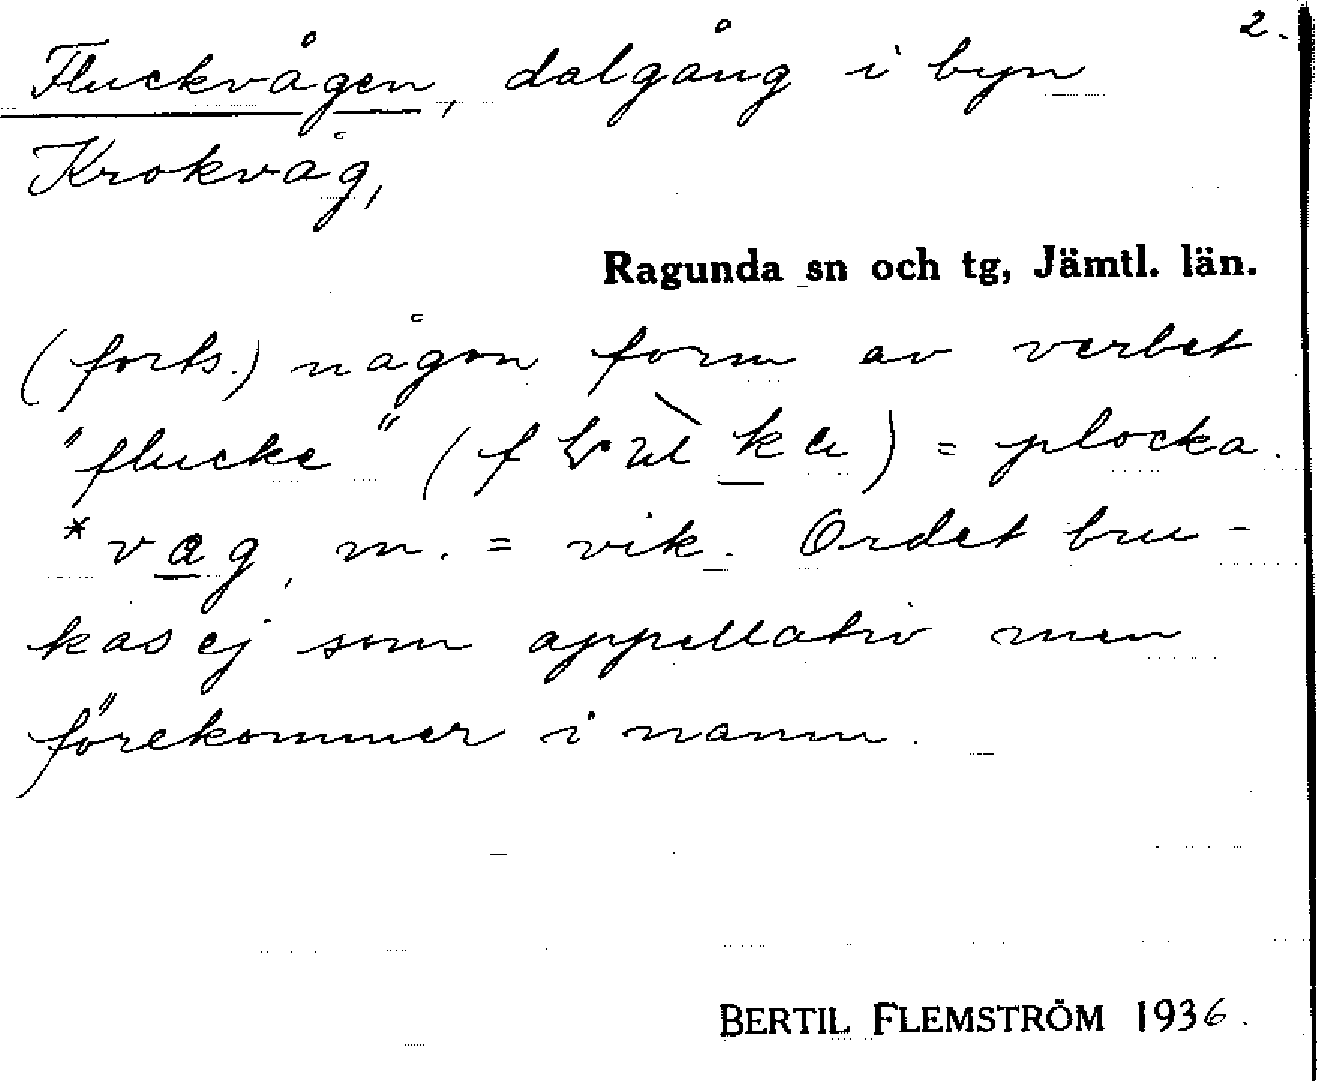 2.
Fluckvågen, dalgång i byn
Krokvåg,
Ragunda sn och tg, Jämtl. län.
(forts.) någon form av verbet
"flucke" ( ) = plocka.
*vag, m. = vik. Ordet bru-
kas ej som appellativ men
förekommer i namn.
BERTIL FLEMSTRÖM 1936.